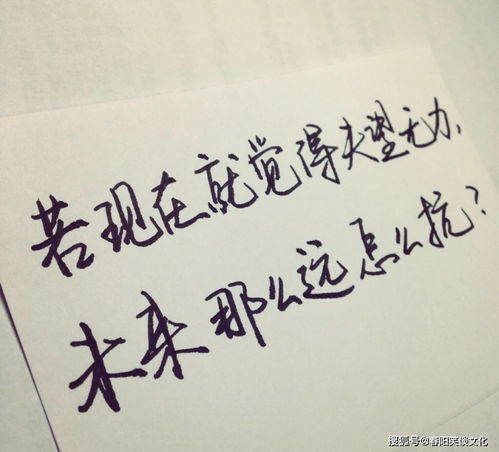 若现在就觉得失望无力，
未来那么远怎么扛？
搜狐号@春阳笑谈文化